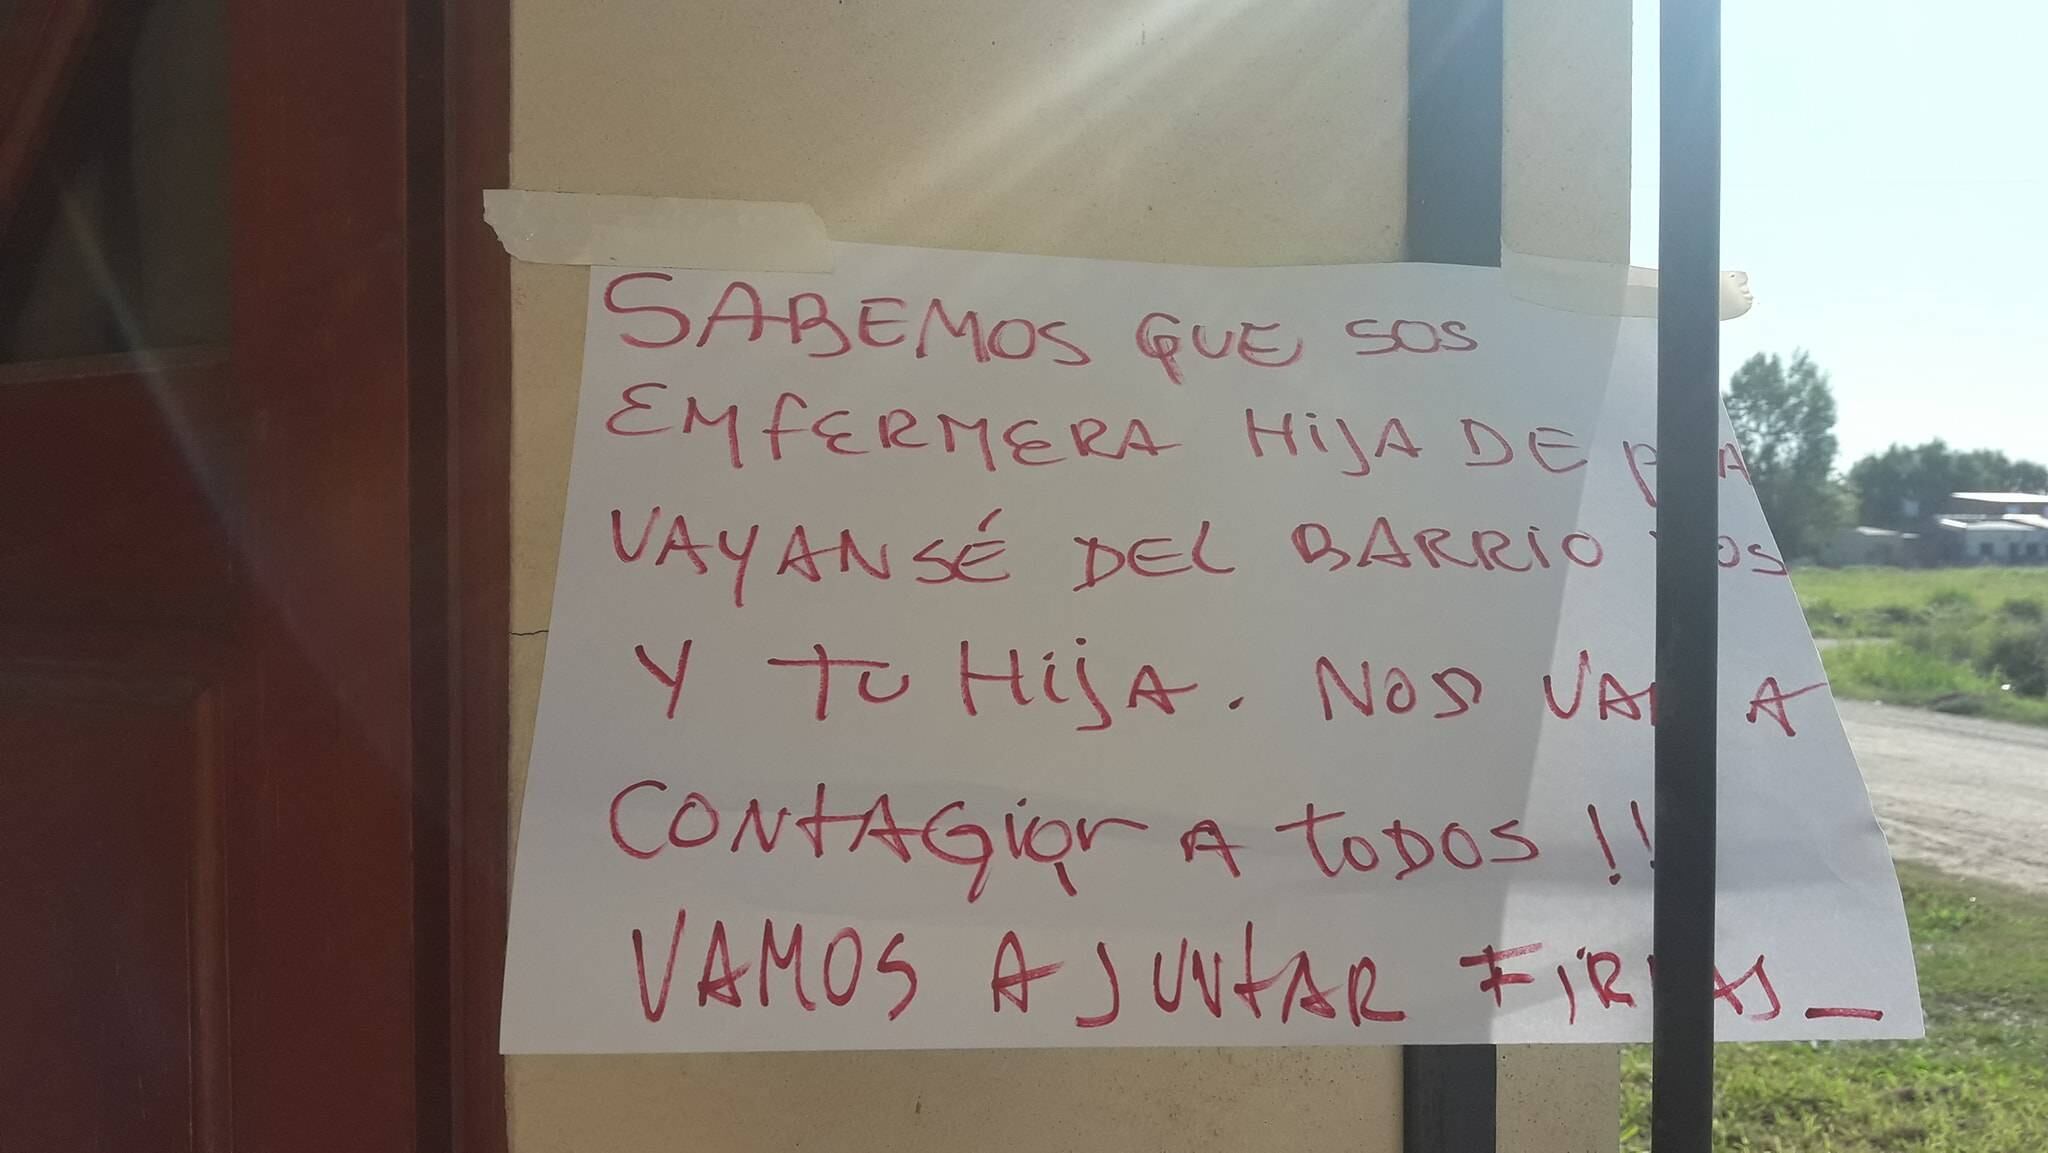 SABEMOS QUE SOS
EMFERMERA HIJA DE
VAYANSÉ DEL BARRIO VOS
Y TU HIJA. NOS VAN A
CONTAGIAR A TODOS !!
VAMOS A JUNTAR FIRMAS_